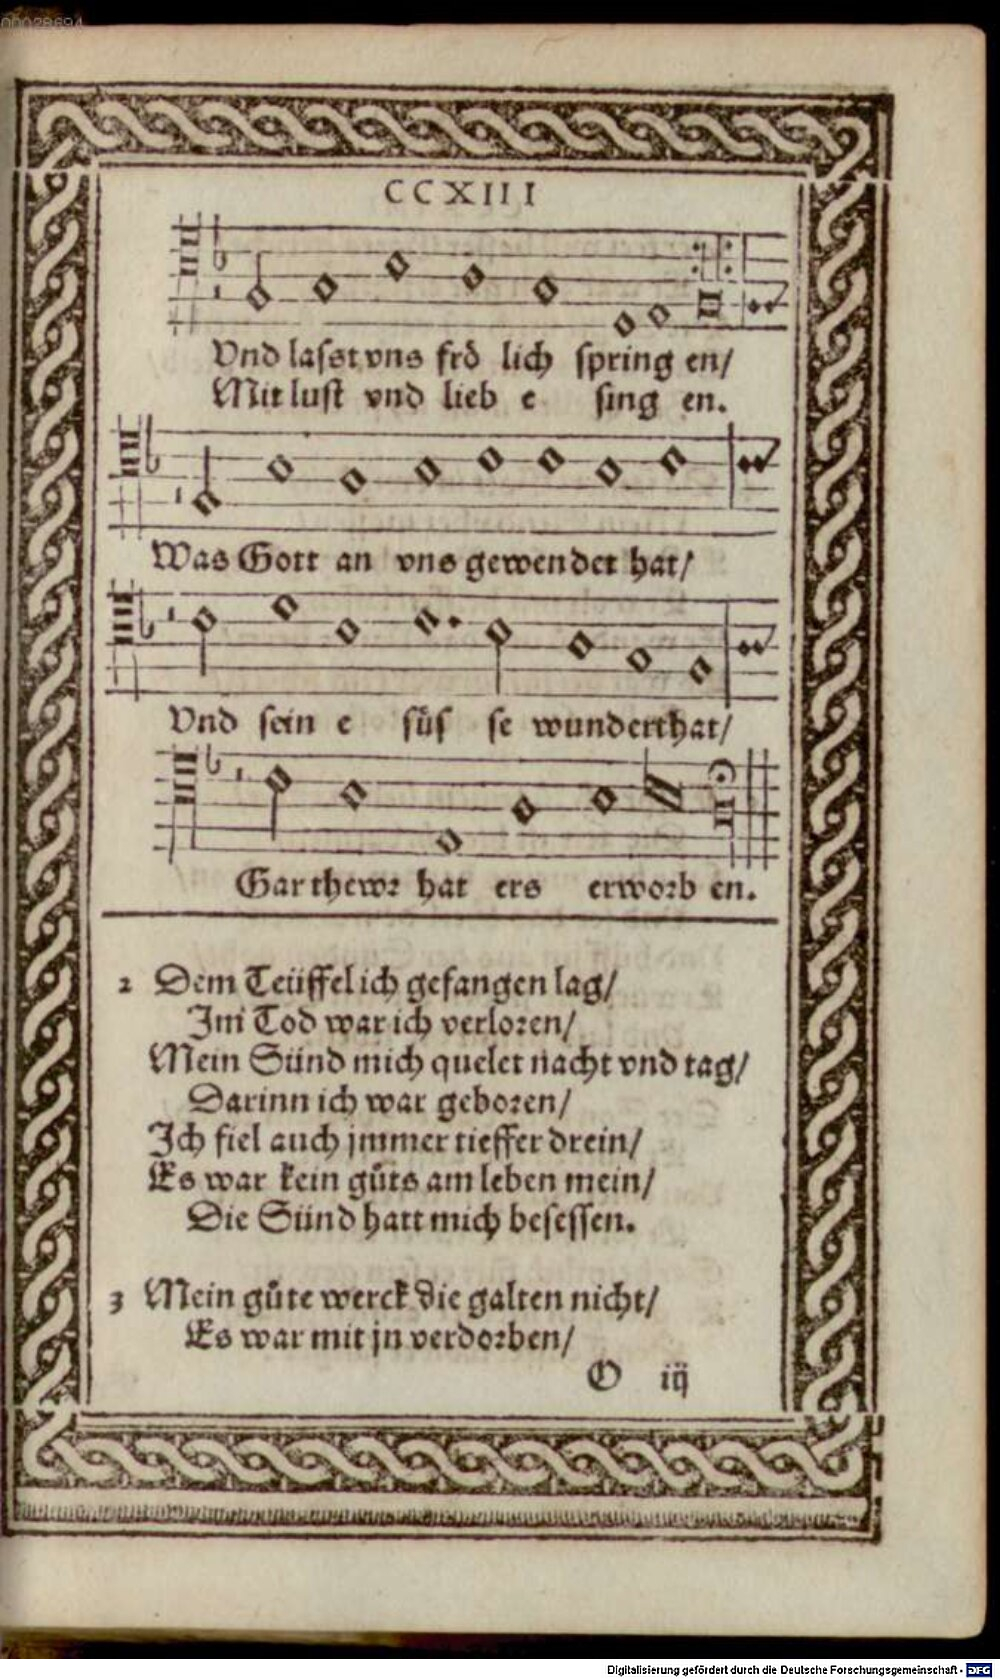 00028694
CCXIII
Vnd lasst vns frö lich spring en/
Mit lust vnd lieb e sing en.
Was Gott an vns gewendet hat/
Vnd sein e süs se wunderthat/
Gar thewr hat ers erworb en.
2 Dem Teüffel ich gefangen lag/
Im Tod war ich verloren/
Mein Sünd mich quelet nacht vnd tag/
Darinn ich war geboren/
Ich fiel auch jmmer tieffer drein/
Es war kein gůts am leben mein/
Die Sünd hatt mich besessen.
3 Mein gůte werck die galten nicht/
Es war mit jn verdorben/
O iij
Digitalisierung gefördert durch die Deutsche Forschungsgemeinschaft - DFG